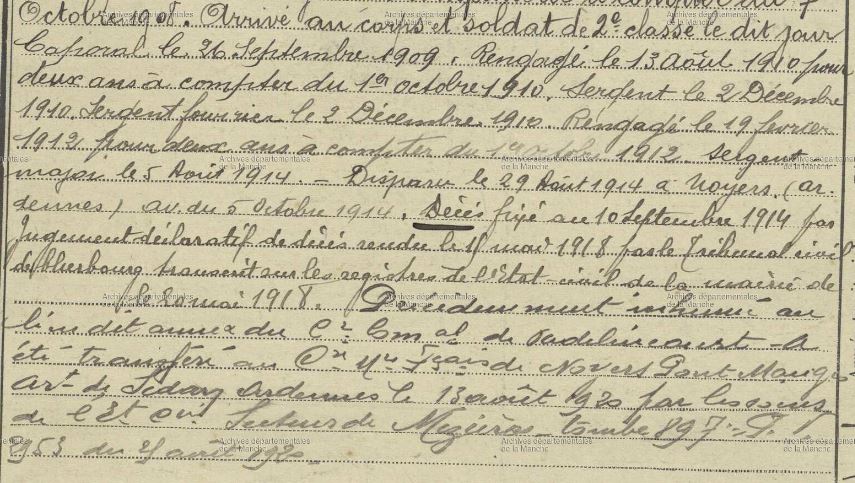 Octobre 1908. Arrivé au corps et soldat de 2e classe le dit jour
Caporal le 26 Septembre 1909. Rengagé le 13 Août 1910 pour
deux ans à compter du 1er octobre 1910. Sergent le 2 Décembre
1910. Sergent fourrier le 2 Décembre 1910. Rengagé le 19 février
1912 pour deux ans à compter du 1912. Sergent
major le 5 Août 1914. – Disparu le 29 Août 1914 à Noyers (ar-
dennes) av. du 5 Octobre 1914. Décès fixé au 10 Septembre 1914 par
Jugement déclaratif de décès rendu le mai 1918 par le Tribunal civil
de Cherbourg transcrit sur les registres de l'Etat civil de la mairie de
le 20 mai 1918. Précédemment inhumé au
lieu dit annexe du Cre Cmal de – A
été transféré au Cre Mre Fçais de Noyers Pont Maugis
art de Sedan Ardennes le 13 août 1920 par les soins
de l'Et Cv. Secteur de Mézières – tombe 897.
953 du avril 1920
Archives départementales
de la Manche